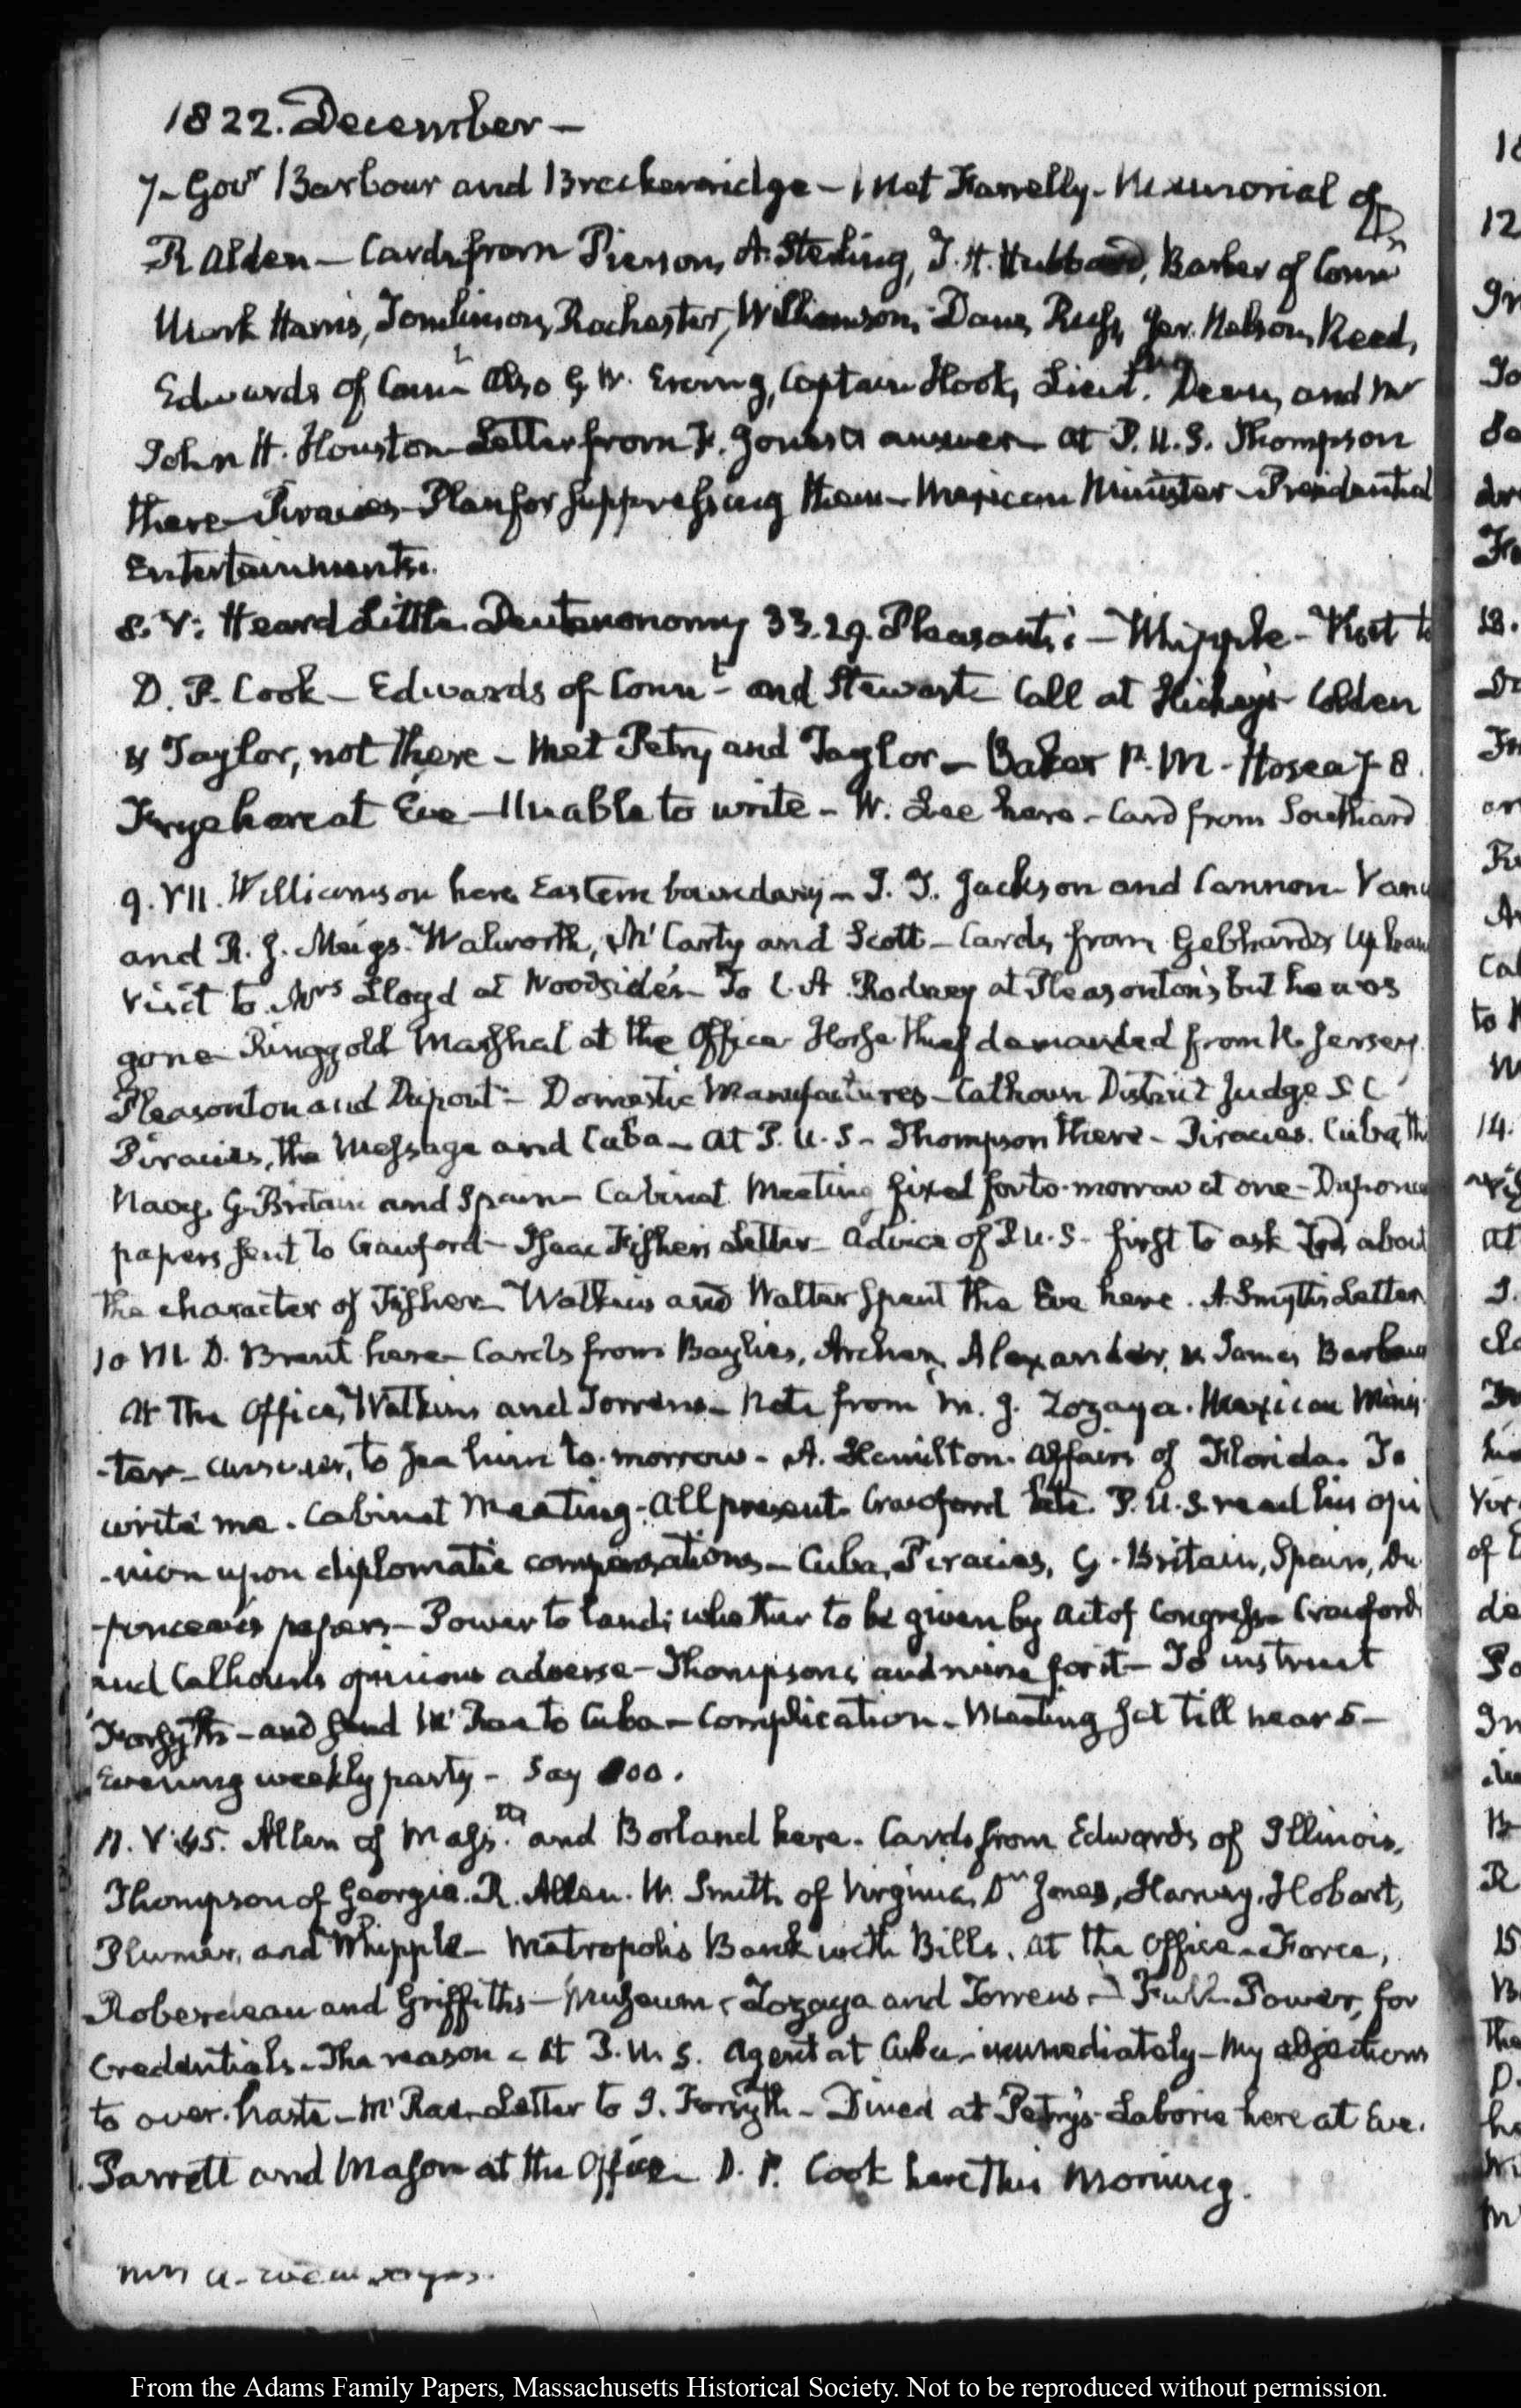 1822. December —
7 – Govr Barbour and Breckenridge – Met Farrelly – Memorial of
R Alden – Cards from Pierson, A. Sterling, T. H. Hubbard, Barber of Connt
Mark Harris, Tomlinson, Rochester, Williamson, Dane, Ruggs, Jer. Nelson, Reed,
Edwards of Connt also G. W. Erving, Captain Hook, Lieut. Deas, and Mr
John H. Houston – Letter from F. Jones answer – At P.U.S. Thompson
there – Piracies – Plan for suppressing them – Mexican Minister – Presidential
Entertainments.
8. V: Heard Little. Deuteronomy 33. 29. Pleasants: – Whipple – Visit to
D. P. Cook – Edwards of Connt – and Stewart – Call at Hickey's – Colden
& Taylor, not there – Met Petry and Taylor – Baker P. M. – Hosea 7 8.
Frye here at Eve – Unable to write – W. Lee here – Card from Southard
9. VII. Williamson here Eastern boundary – J. J. Jackson and Cannon –
and R. J. Meigs. Walworth, McCarty and Scott – Cards from Gebhard & Upham
Visit to Mrs Lloyd at Woodside's – To C. A. Rodney at Pleasonton's but he was
gone – Ringgold Marshal at the Office. Horse thief demanded from N. Jersey.
Pleasonton and Dupont – Domestic Manufactures – Calhoun District Judge S C
Piracies, the Message and Cuba – At P.U.S – Thompson there – Piracies. Cuba, the
Navy, G. Britain and Spain – Cabinet Meeting fixed for to-morrow at one –
papers sent to Crawford – Isaac Fisher's Letter – Advice of P.U.S – first to ask about
the character of Fisher – Watkins and Walter spent the Eve here. A. Smyth's Letter
10 VI. D. Brent here – Cards from Baylies, Archer, Alexander, & James Barbour
At the Office, Watkins and Torrens – Note from M. J. Zozaya. Mexican Minis-
-ter – answer, to see him to-morrow – A. Hamilton. Affairs of Florida. To
write me. Cabinet Meeting. All present. Crawford late. P.U.S. read his opi
-nion upon diplomatic compensations – Cuba, Piracies, G. Britain, Spain, Du
-ponceau's papers – Power to land; whether to be given by act of Congress – Crawford's
and Calhoun's opinions adverse – Thompson's and mine for it – To instruct
Forsyth – and send McRae to Cuba – Complication – Meeting sat till near 5 –
Evening weekly party – Say 100.
11. V:45. Allen of Mass.tts and Borland here. Cards from Edwards of Illinois,
Thompson of Georgia. R. Allen. W. Smith of Virginia, Dr Jones, Harvey, Hobart,
Plumer, and Whipple – Metropolis Bank with Bills. At the Office – Force,
Roberdeau and Griffiths – Museum – Zozaya and Torrens – Full Power, for
Credentials – The reason – At P.U.S. Agent at Cuba – immediately – My objections
to over-haste – McRae – Letter to J. Forsyth – Dined at Petry's – Laborie here at Eve.
Parrott and Mason at the Office – D. P. Cook here this Morning.
From the Adams Family Papers, Massachusetts Historical Society. Not to be reproduced without permission.